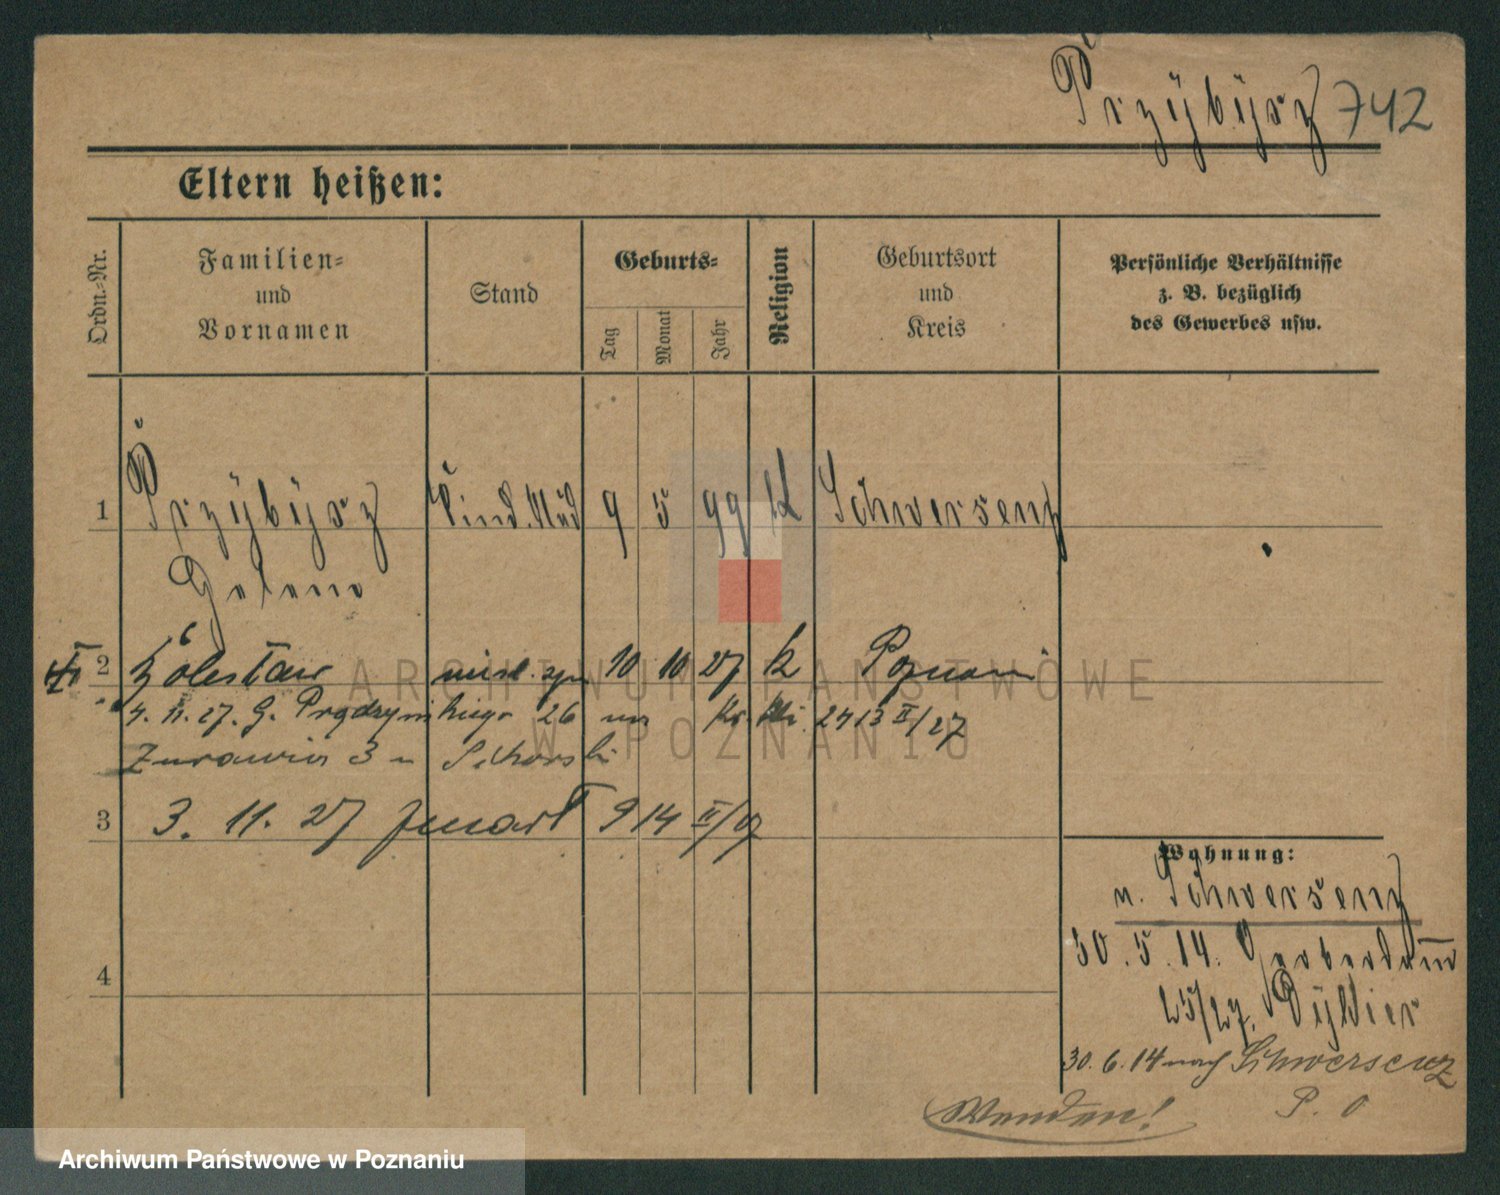 Przybysz 742
Eltern heißen:
Ordn.-Nr.
Familien-
und
Vornamen
Stand
Geburts-
Tag
Monat
Jahr
Religion
Geburtsort
und
Kreis
Persönliche Verhältnisse
z. B. bezüglich
des Gewerbes usw.
1 Przybysz 9 5 99 K Schwersenz
2 10 10 27 k Poznań
4. 11. 27. G. Prądzyńskiego 26 2413 II/27
Żurawia 3 u Sikorski
3 3. 11. 27 914 II/07
4
Wohnung:
v. Schwersenz
30. 5. 14. Gerberdamm
30. 6. 14 nach Schwersenz
P. O
Wenden!
ARCHIWUM PAŃSTWOWE
W POZNANIU
Archiwum Państwowe w Poznaniu